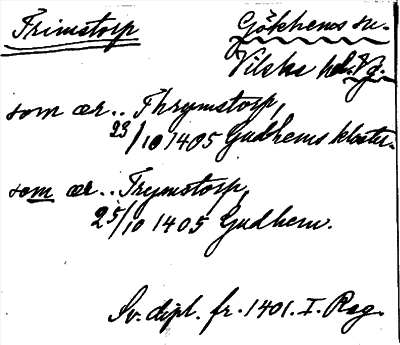 Frimstorp
Gökhems sn.
Vilske hd. Vg.
som ær.. Thrymstorp,
23/10 1405 Gudhems kloster.
som ær.. Trymstorp,
25/10 1405 Gudhem.
Sv. dipl. fr. 1401. I. Reg.